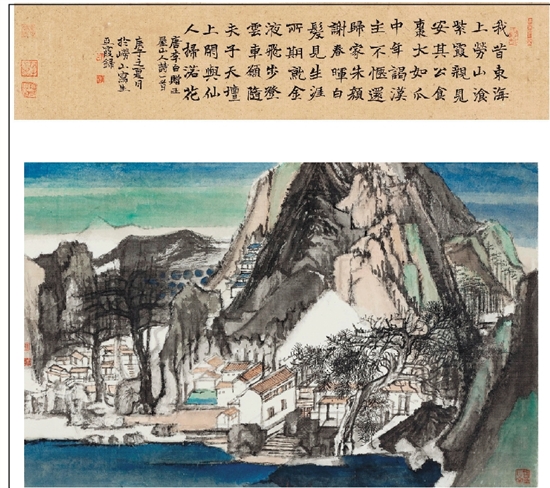 我昔東海
上勞山湌
紫霞親見
安其公食
棗大如瓜
中年謁漢
主不愜還
歸家朱顏
謝春暉白
髮見生涯
所期就金
液飛步登
雲車願隨
夫子天壇
上閑與仙
人掃落花
唐李白贈王
屋山人詩一首
庚子之夏月
於嶗山寫生